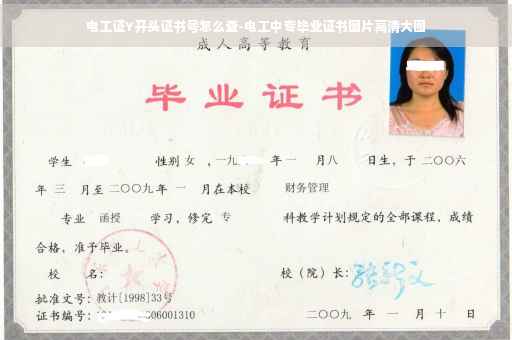 电工证Y开头证书号怎么查-电工中专毕业证书图片高清大图
成人高等教育
毕业证书
学生 性别 女 ，一九 年 一 月八 日生，于 二〇〇六
年 三 月至 二〇〇九 年 一 月在本校 财务管理
专业 函授 学习，修完 专 科教学计划规定的全部课程，成绩
合格，准予毕业。
校 名： 校（院）长：
批准文号：教计[1998]33号
证书编号： 06001310 二〇〇九 年 一 月 十 日